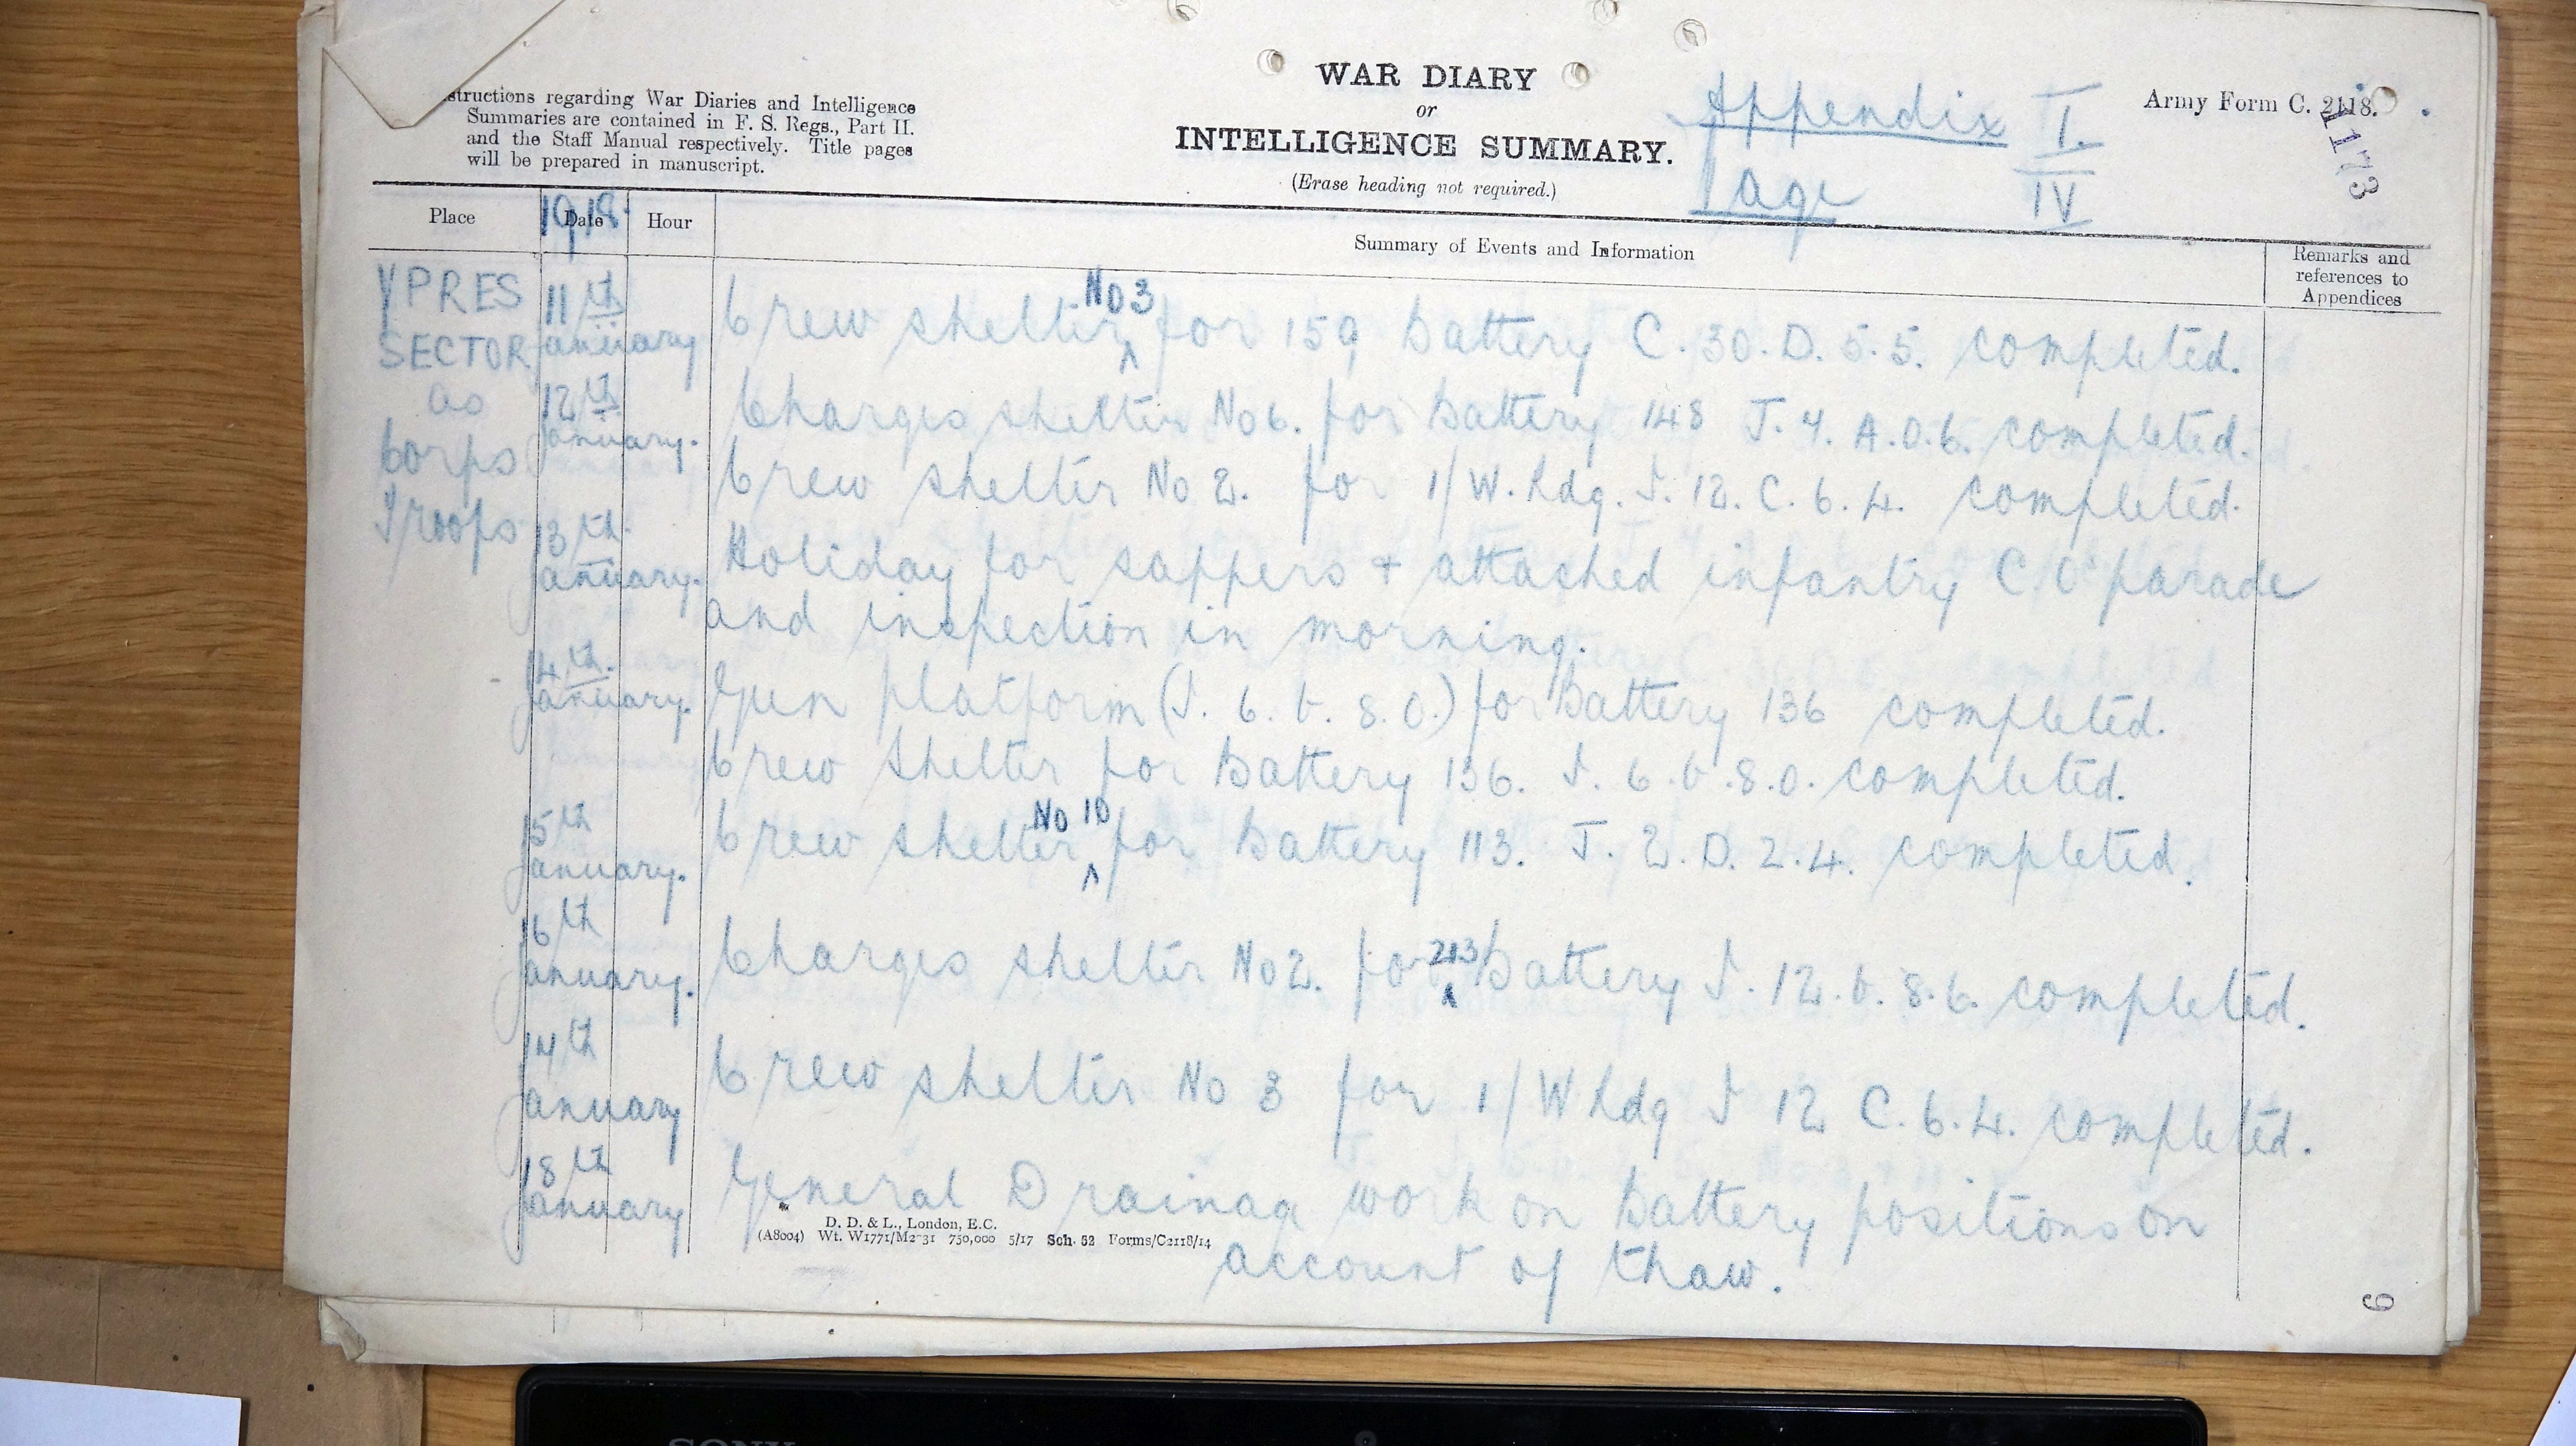 WAR DIARY
or
INTELLIGENCE SUMMARY.
(Erase heading not required.)
structions regarding War Diaries and Intelligence
Summaries are contained in F. S. Regs., Part II.
and the Staff Manual respectively. Title pages
will be prepared in manuscript.
Appendix I.
Page IV
Army Form C. 2118.
1173
Place
1918.
Date
Hour
Summary of Events and Information
Remarks and
references to
Appendices
YPRES
SECTOR
as
Corps
Troops
11th
January
Crew shelter No 3 for 159 Battery C. 30. D. 5.5. completed.
12th
January.
Charges shelter No 6. for Battery 148 J. 4. A.0.6. completed.
Crew shelter No 2. for 1/W. Rdg. J. 12. C. 6. 4. completed.
13th
January.
Holiday for sappers + attached infantry C.O. parade
and inspection in morning.
14th
January.
Gun platform (J. 6. b. 8. 0.) for Battery 136 completed.
Crew shelter for Battery 136. J. 6. b. 8. 0. completed.
15th
January.
Crew shelter No 10 for Battery 113. J. 2. D. 2. 4. completed.
16th
January.
Charges shelter No 2. for 213 Battery J. 12. b. 8. 6. completed.
17th
January
Crew shelter No 3 for 1/W Rdg J 12 C. 6. 4. completed.
18th
January
General Drainag work on Battery positions on
account of thaw.
D. D. & L., London, E.C.
(A8004) Wt. W1771/M2 31 750,000 5/17 Sch. 52 Forms/C2118/14
SONY